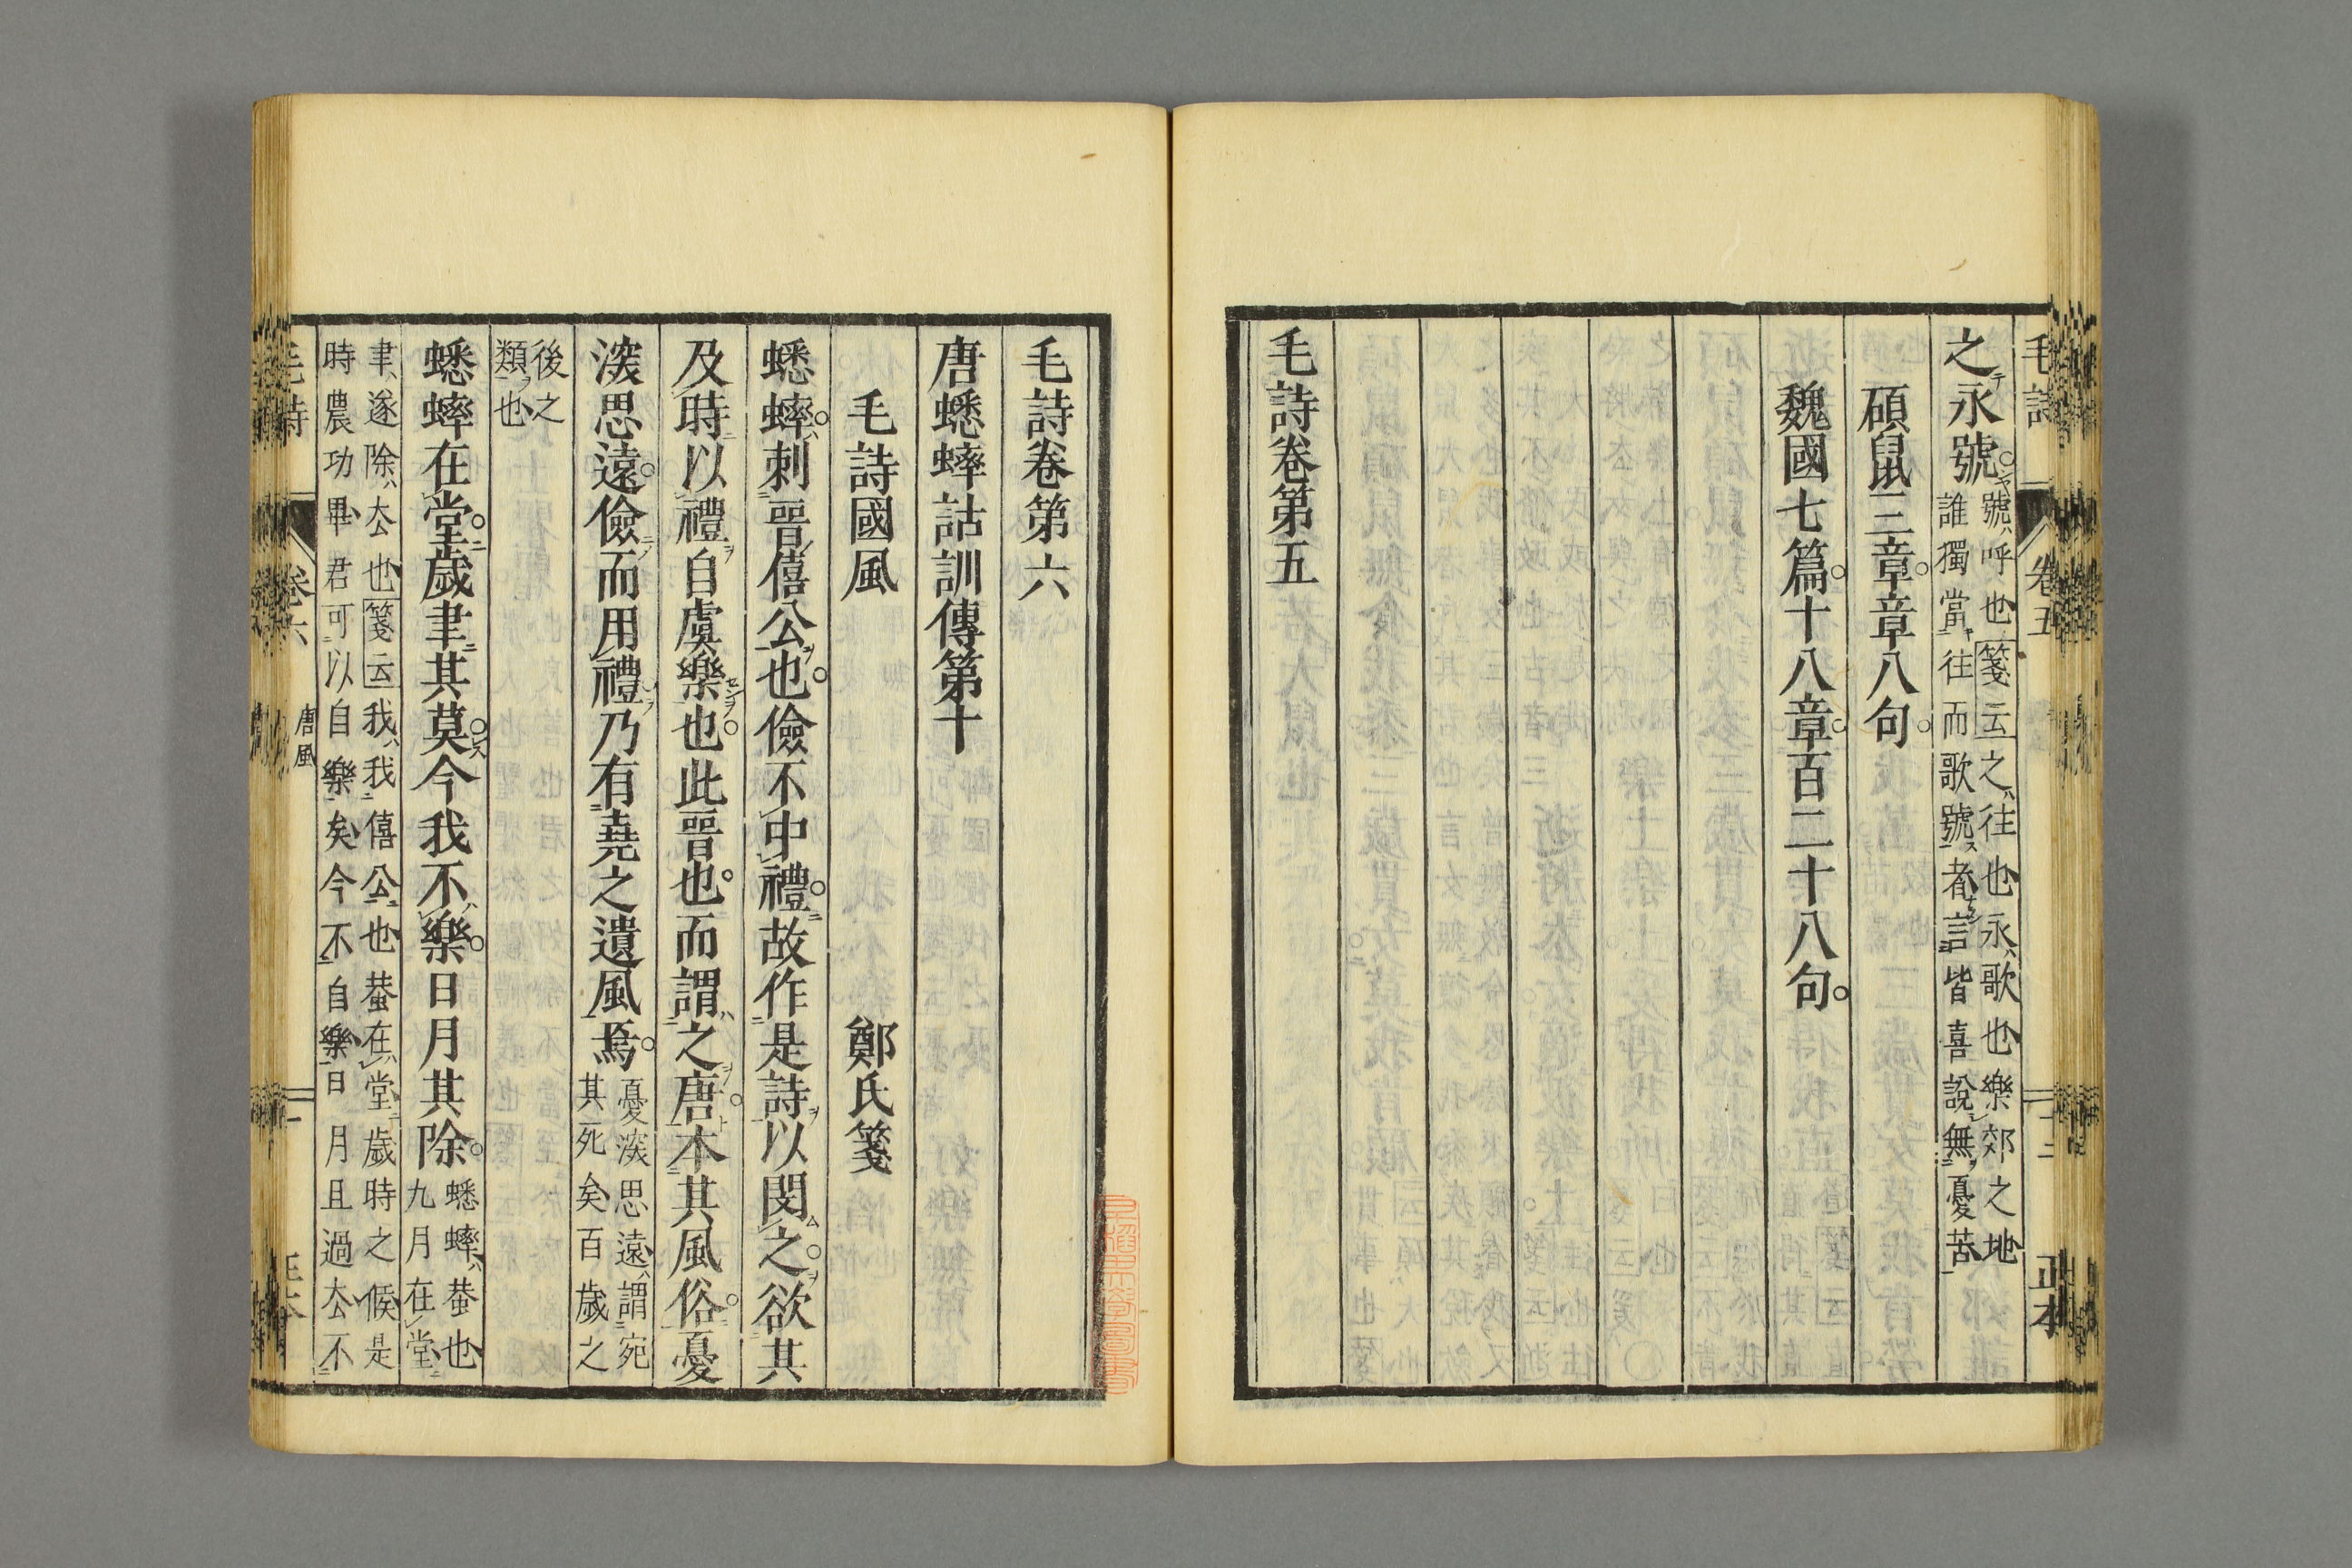 之永號號呼也箋云之往也永歌也樂郊之地
誰獨當往而歌號者言皆喜說無憂苦
碩鼠三章章八句
魏國七篇十八章百二十八句
毛詩卷第五
毛詩卷第六
唐蟋蟀詁訓傳第十
毛詩國風 鄭氏箋
蟋蟀刺晉僖公也儉不中禮故作是詩以閔之欲其
及時以禮自虞樂也此晉也而謂之唐本其風俗憂
深思遠儉而用禮乃有堯之遺風焉憂深思遠謂宛
其死矣百歲之
後之
類也
蟋蟀在堂歲聿其莫今我不樂日月其除蟋蟀蛬也
九月在堂
聿遂除去也箋云我我僖公也蛬在堂歲時之候是
時農功畢君可以自樂矣今不自樂日月且過去不
卷六
唐風
卷五
正本